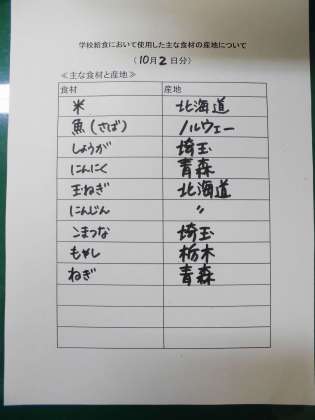 学校給食において使用した主な食材の産地について
(10月2日分)
≪主な食材と産地≫
食材 産地
米 北海道
魚(さば) ノルウェー
しょうが 埼玉
にんにく 青森
玉ねぎ 北海道
にんじん 〃
こまつな 埼玉
もやし 栃木
ねぎ 青森